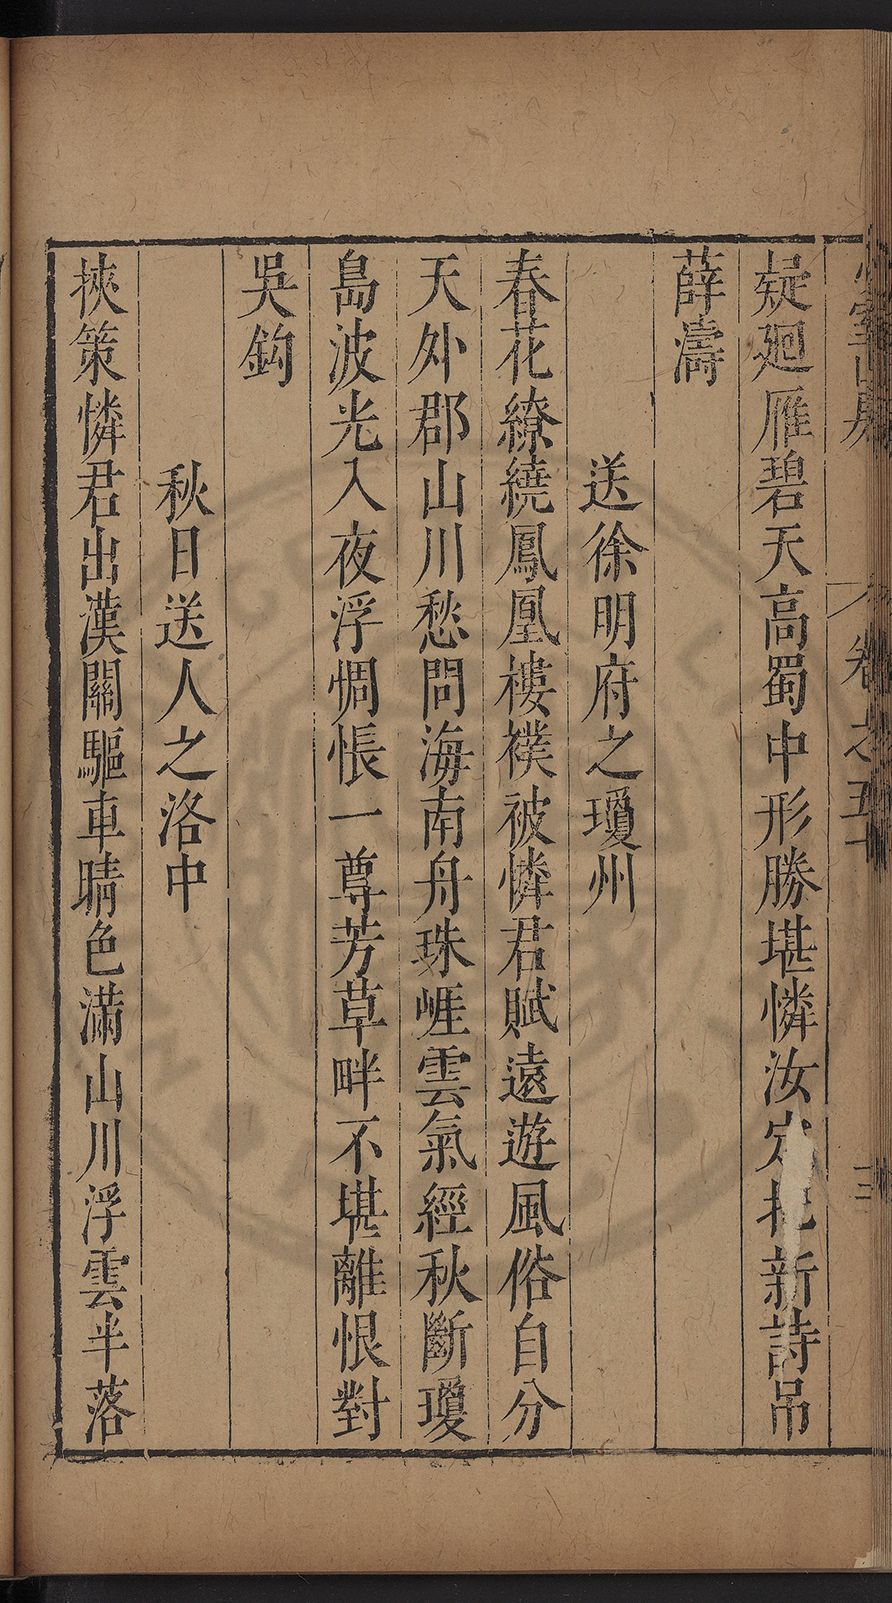 少室山房
卷之五十
三
疑廻雁碧天高蜀中形勝堪憐汝定把新詩吊
薛濤
送徐明府之瓊州
春花繚繞鳳凰樓襆被憐君賦遠遊風俗自分
天外郡山川愁問海南舟珠崕雲氣經秋斷瓊
島波光入夜浮惆悵一尊芳草畔不堪離恨對
吳鈎
秋日送人之洛中
挾策憐君出漢關驅車晴色滿山川浮雲半落